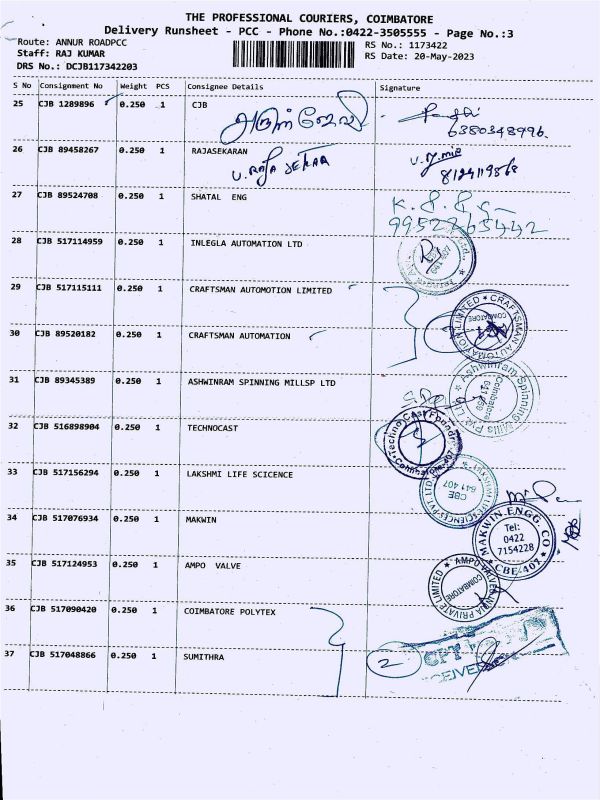 THE PROFESSIONAL COURIERS, COIMBATORE
Delivery Runsheet - PCC - Phone No.:0422-3505555 - Page No.:3
Route: ANNUR ROADPCC
RS No.: 1173422
Staff: RAJ KUMAR
RS Date: 20-May-2023
DRS No.: DCJB117342203
S No Consignment No Weight PCS Consignee Details Signature
25 CJB 1289896 0.250 1 CJB
6380348996.
26 CJB 89458267 0.250 1 RAJASEKARAN
U. RAJA SEKAR
27 CJB 89524708 0.250 1 SHATAL ENG
9952265442
28 CJB 517114959 0.250 1 INLEGLA AUTOMATION LTD
29 CJB 517115111 0.250 1 CRAFTSMAN AUTOMOTION LIMITED
CRAFTSMAN AUTOMATION LIMITED
COIMBATORE
30 CJB 89520182 0.250 1 CRAFTSMAN AUTOMATION
31 CJB 89345389 0.250 1 ASHWINRAM SPINNING MILLSP LTD
Ashwinram Spinning Mills Pvt. Ltd
Coimbatore
641 659
32 CJB 516898904 0.250 1 TECHNOCAST
33 CJB 517156294 0.250 1 LAKSHMI LIFE SCICENCE
CBE
641 407
34 CJB 517076934 0.250 1 MAKWIN
MAKWIN ENGG. CO
Tel:
0422
7154228
CBE-407
35 CJB 517124953 0.250 1 AMPO VALVE
AMPO VALVES INDIA PRIVATE LIMITED
COIMBATORE
36 CJB 517090420 0.250 1 COIMBATORE POLYTEX
37 CJB 517048866 0.250 1 SUMITHRA
2